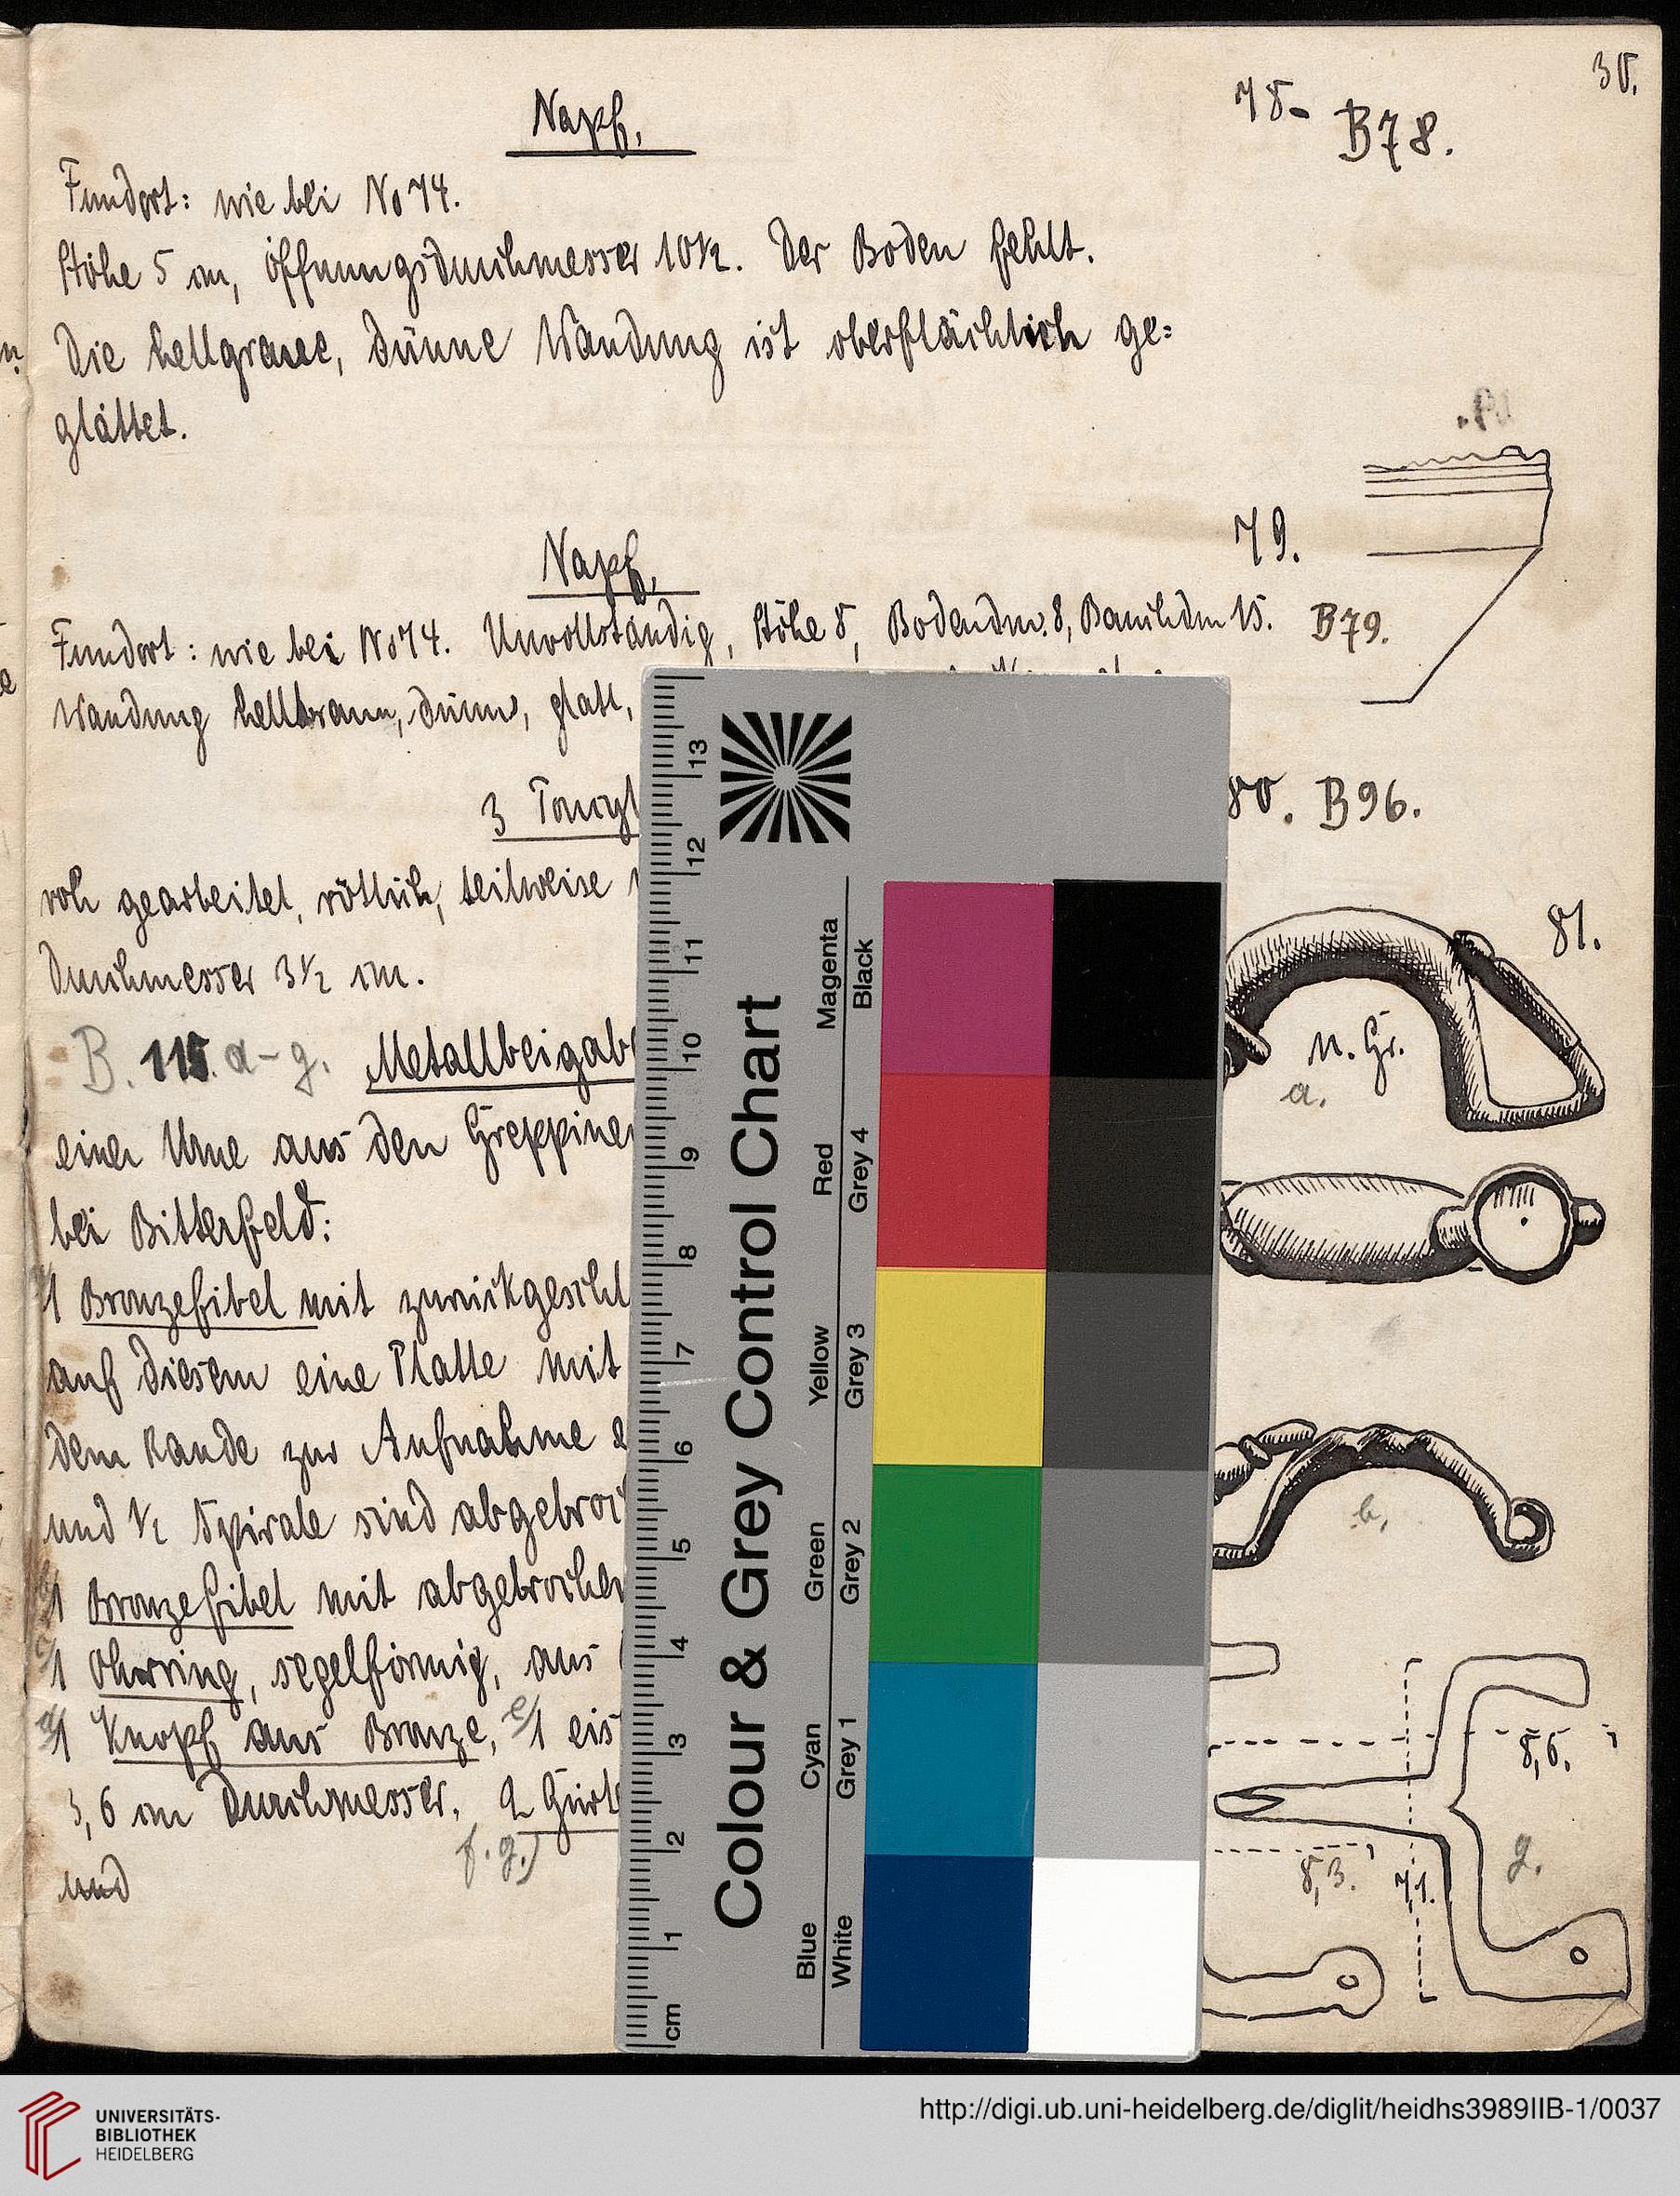 30.
Napf. 78. B78.
Fundort: wie bei No 74.
Höhe 5 cm, Öffnungsdurchmesser 10½. Der Boden fehlt.
Die hellgraue, dünne Wandung ist oberflächlich ge=
glättet.
Napf. 79.
Fundort: wie bei No 74. Unvollständig, Höhe 8, Bodendm. 8, Bauchdm 15. B79.
Wandung hellbraun, dünn, glatt,
3 80. B96.
roh gearbeitet, rötlich, teilweise
Durchmesser 3½ cm.
81.
B. 115. a-g. Metallbeigab
n. Gr.
a.
einer Urne aus den Greppiner
bei Bitterfeld:
1 Bronzefibel mit zurückgeschl
auf diesem eine Platte mit
dem Rande zur Aufnahme
und ½ Spirale sind abgebroc
b.
1 Bronzefibel mit abgebrochen
c/1 Ohrring, segelförmig, aus
d/1 Knopf aus Bronze, e/1 eis
3,6 cm Durchmesser. 2 Gürt
f. g.)
und
8,6.
8,3. 7,1. g.
Colour & Grey Control Chart
Magenta Black
Red Grey 4
Yellow Grey 3
Green Grey 2
Cyan Grey 1
Blue White
13
12
11
10
9
8
7
6
5
4
3
2
1
cm
UNIVERSITÄTS-
BIBLIOTHEK
HEIDELBERG
http://digi.ub.uni-heidelberg.de/diglit/heidhs3989IIB-1/0037